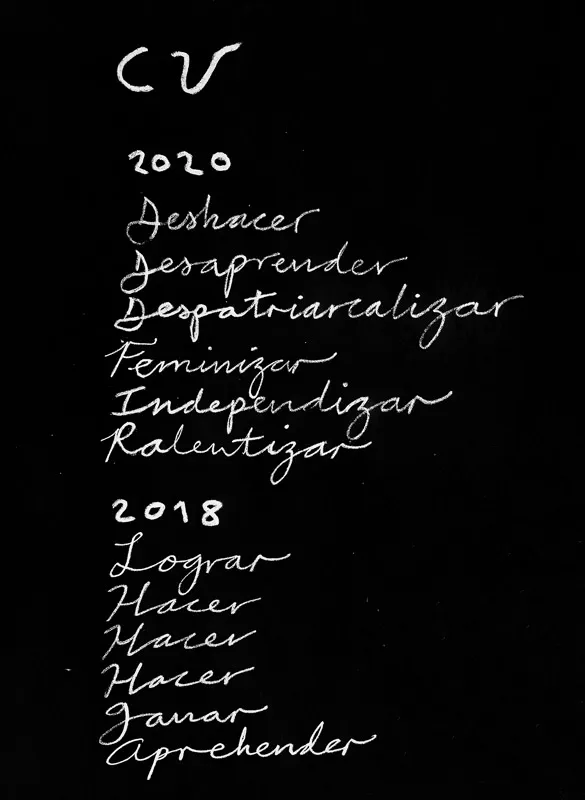 CV
2020
Deshacer
Desaprender
Despatriarcalizar
Feminizar
Independizar
Ralentizar
2018
Lograr
Hacer
Hacer
Hacer
Ganar
Aprehender